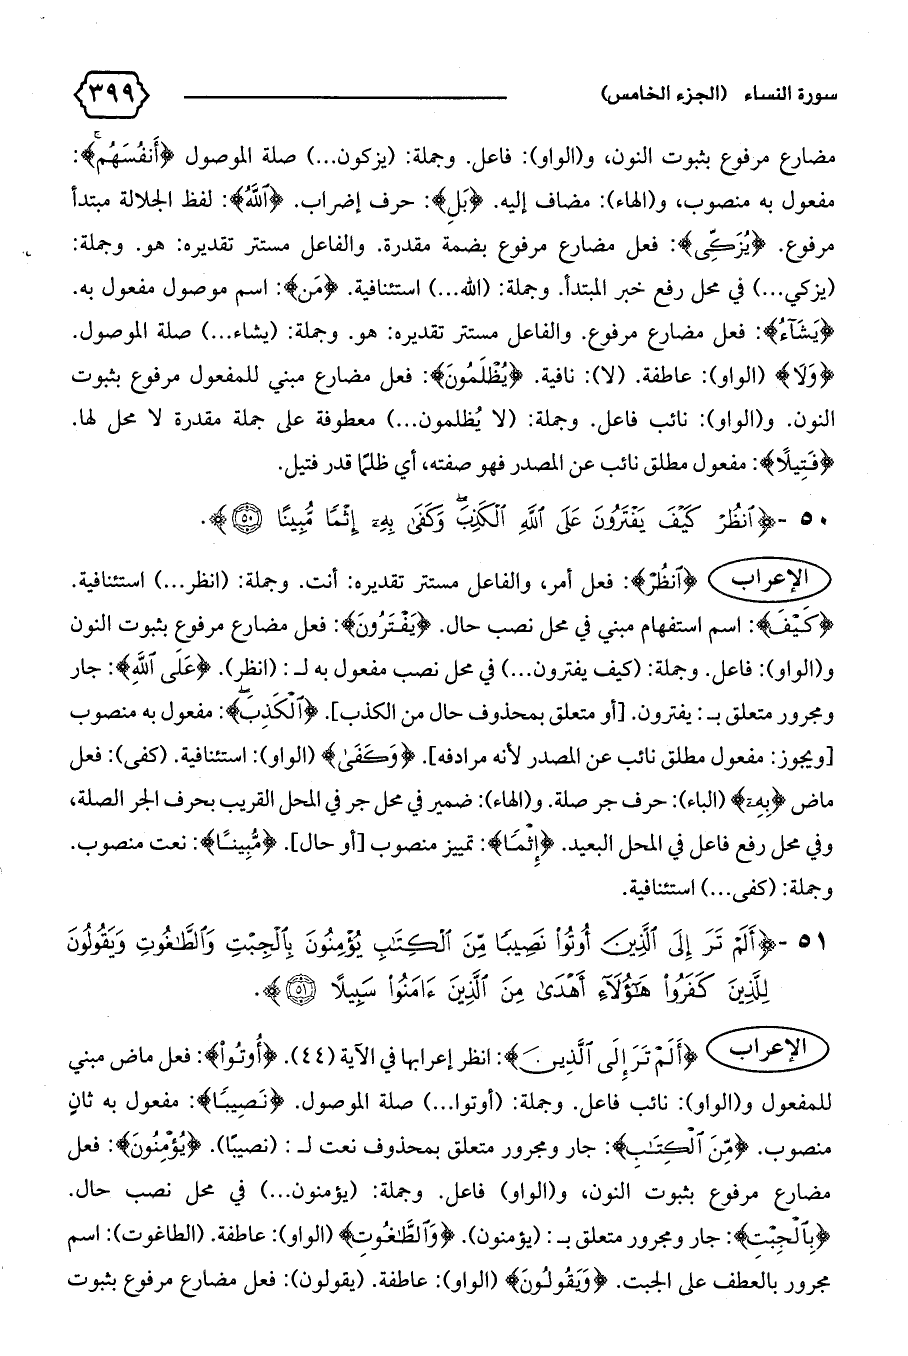 سورة النساء (الجزء الخامس) ٣٩٩
مضارع مرفوع بثبوت النون، و(الواو): فاعل. وجملة: (يزكون...) صلة الموصول ﴿أَنفُسَهُمۚ﴾:
مفعول به منصوب، و(الهاء): مضاف إليه. ﴿بَلِ﴾: حرف إضراب. ﴿ٱللَّهُ﴾: لفظ الجلالة مبتدأ
مرفوع. ﴿يُزَكِّى﴾: فعل مضارع مرفوع بضمة مقدرة. والفاعل مستتر تقديره: هو. وجملة:
(يزكي...) في محل رفع خبر المبتدأ. وجملة: (الله...) استئنافية. ﴿مَن﴾: اسم موصول مفعول به.
﴿يَشَآءُ﴾: فعل مضارع مرفوع. والفاعل مستتر تقديره: هو. وجملة: (يشاء...) صلة الموصول.
﴿وَلَا﴾ (الواو): عاطفة. (لا): نافية. ﴿يُظْلَمُونَ﴾: فعل مضارع مبني للمفعول مرفوع بثبوت
النون. و(الواو): نائب فاعل. وجملة: (لا يُظلمون...) معطوفة على جملة مقدرة لا محل لها.
﴿فَتِيلًا﴾: مفعول مطلق نائب عن المصدر فهو صفته، أي ظلمًا قدر فتيل.
٥٠ -﴿ٱنظُرْ كَيْفَ يَفْتَرُونَ عَلَى ٱللَّهِ ٱلْكَذِبَۖ وَكَفَىٰ بِهِۦٓ إِثْمًا مُّبِينًا ٥٠﴾.
الإعراب ﴿ٱنظُرْ﴾: فعل أمر، والفاعل مستتر تقديره: أنت. وجملة: (انظر...) استئنافية.
﴿كَيْفَ﴾: اسم استفهام مبني في محل نصب حال. ﴿يَفْتَرُونَ﴾: فعل مضارع مرفوع بثبوت النون
و(الواو): فاعل. وجملة: (كيف يفترون...) في محل نصب مفعول به لـ : (انظر). ﴿عَلَى ٱللَّهِ﴾: جار
ومجرور متعلق بـ : يفترون. [أو متعلق بمحذوف حال من الكذب]. ﴿ٱلْكَذِبَۖ﴾: مفعول به منصوب
[ويجوز: مفعول مطلق نائب عن المصدر لأنه مرادفه]. ﴿وَكَفَىٰ﴾ (الواو): استئنافية. (كفى): فعل
ماض ﴿بِهِۦٓ﴾ (الباء): حرف جر صلة. و(الهاء): ضمير في محل جر في المحل القريب بحرف الجر الصلة،
وفي محل رفع فاعل في المحل البعيد. ﴿إِثْمًا﴾: تمييز منصوب [أو حال]. ﴿مُّبِينًا﴾: نعت منصوب.
وجملة: (كفى...) استئنافية.
٥١ -﴿أَلَمْ تَرَ إِلَى ٱلَّذِينَ أُوتُوا۟ نَصِيبًا مِّنَ ٱلْكِتَٰبِ يُؤْمِنُونَ بِٱلْجِبْتِ وَٱلطَّٰغُوتِ وَيَقُولُونَ
لِلَّذِينَ كَفَرُوا۟ هَٰٓؤُلَآءِ أَهْدَىٰ مِنَ ٱلَّذِينَ ءَامَنُوا۟ سَبِيلًا ٥١﴾.
الإعراب ﴿أَلَمْ تَرَ إِلَى ٱلَّذِينَ﴾: انظر إعرابها في الآية (٤٤). ﴿أُوتُوا۟﴾: فعل ماض مبني
للمفعول و(الواو): نائب فاعل. وجملة: (أوتوا...) صلة الموصول. ﴿نَصِيبًا﴾: مفعول به ثانٍ
منصوب. ﴿مِّنَ ٱلْكِتَٰبِ﴾: جار ومجرور متعلق بمحذوف نعت لـ : (نصيبًا). ﴿يُؤْمِنُونَ﴾: فعل
مضارع مرفوع بثبوت النون، و(الواو) فاعل. وجملة: (يؤمنون...) في محل نصب حال.
﴿بِٱلْجِبْتِ﴾: جار ومجرور متعلق بـ : (يؤمنون). ﴿وَٱلطَّٰغُوتِ﴾ (الواو): عاطفة. (الطاغوت): اسم
مجرور بالعطف على الجبت. ﴿وَيَقُولُونَ﴾ (الواو): عاطفة. (يقولون): فعل مضارع مرفوع بثبوت